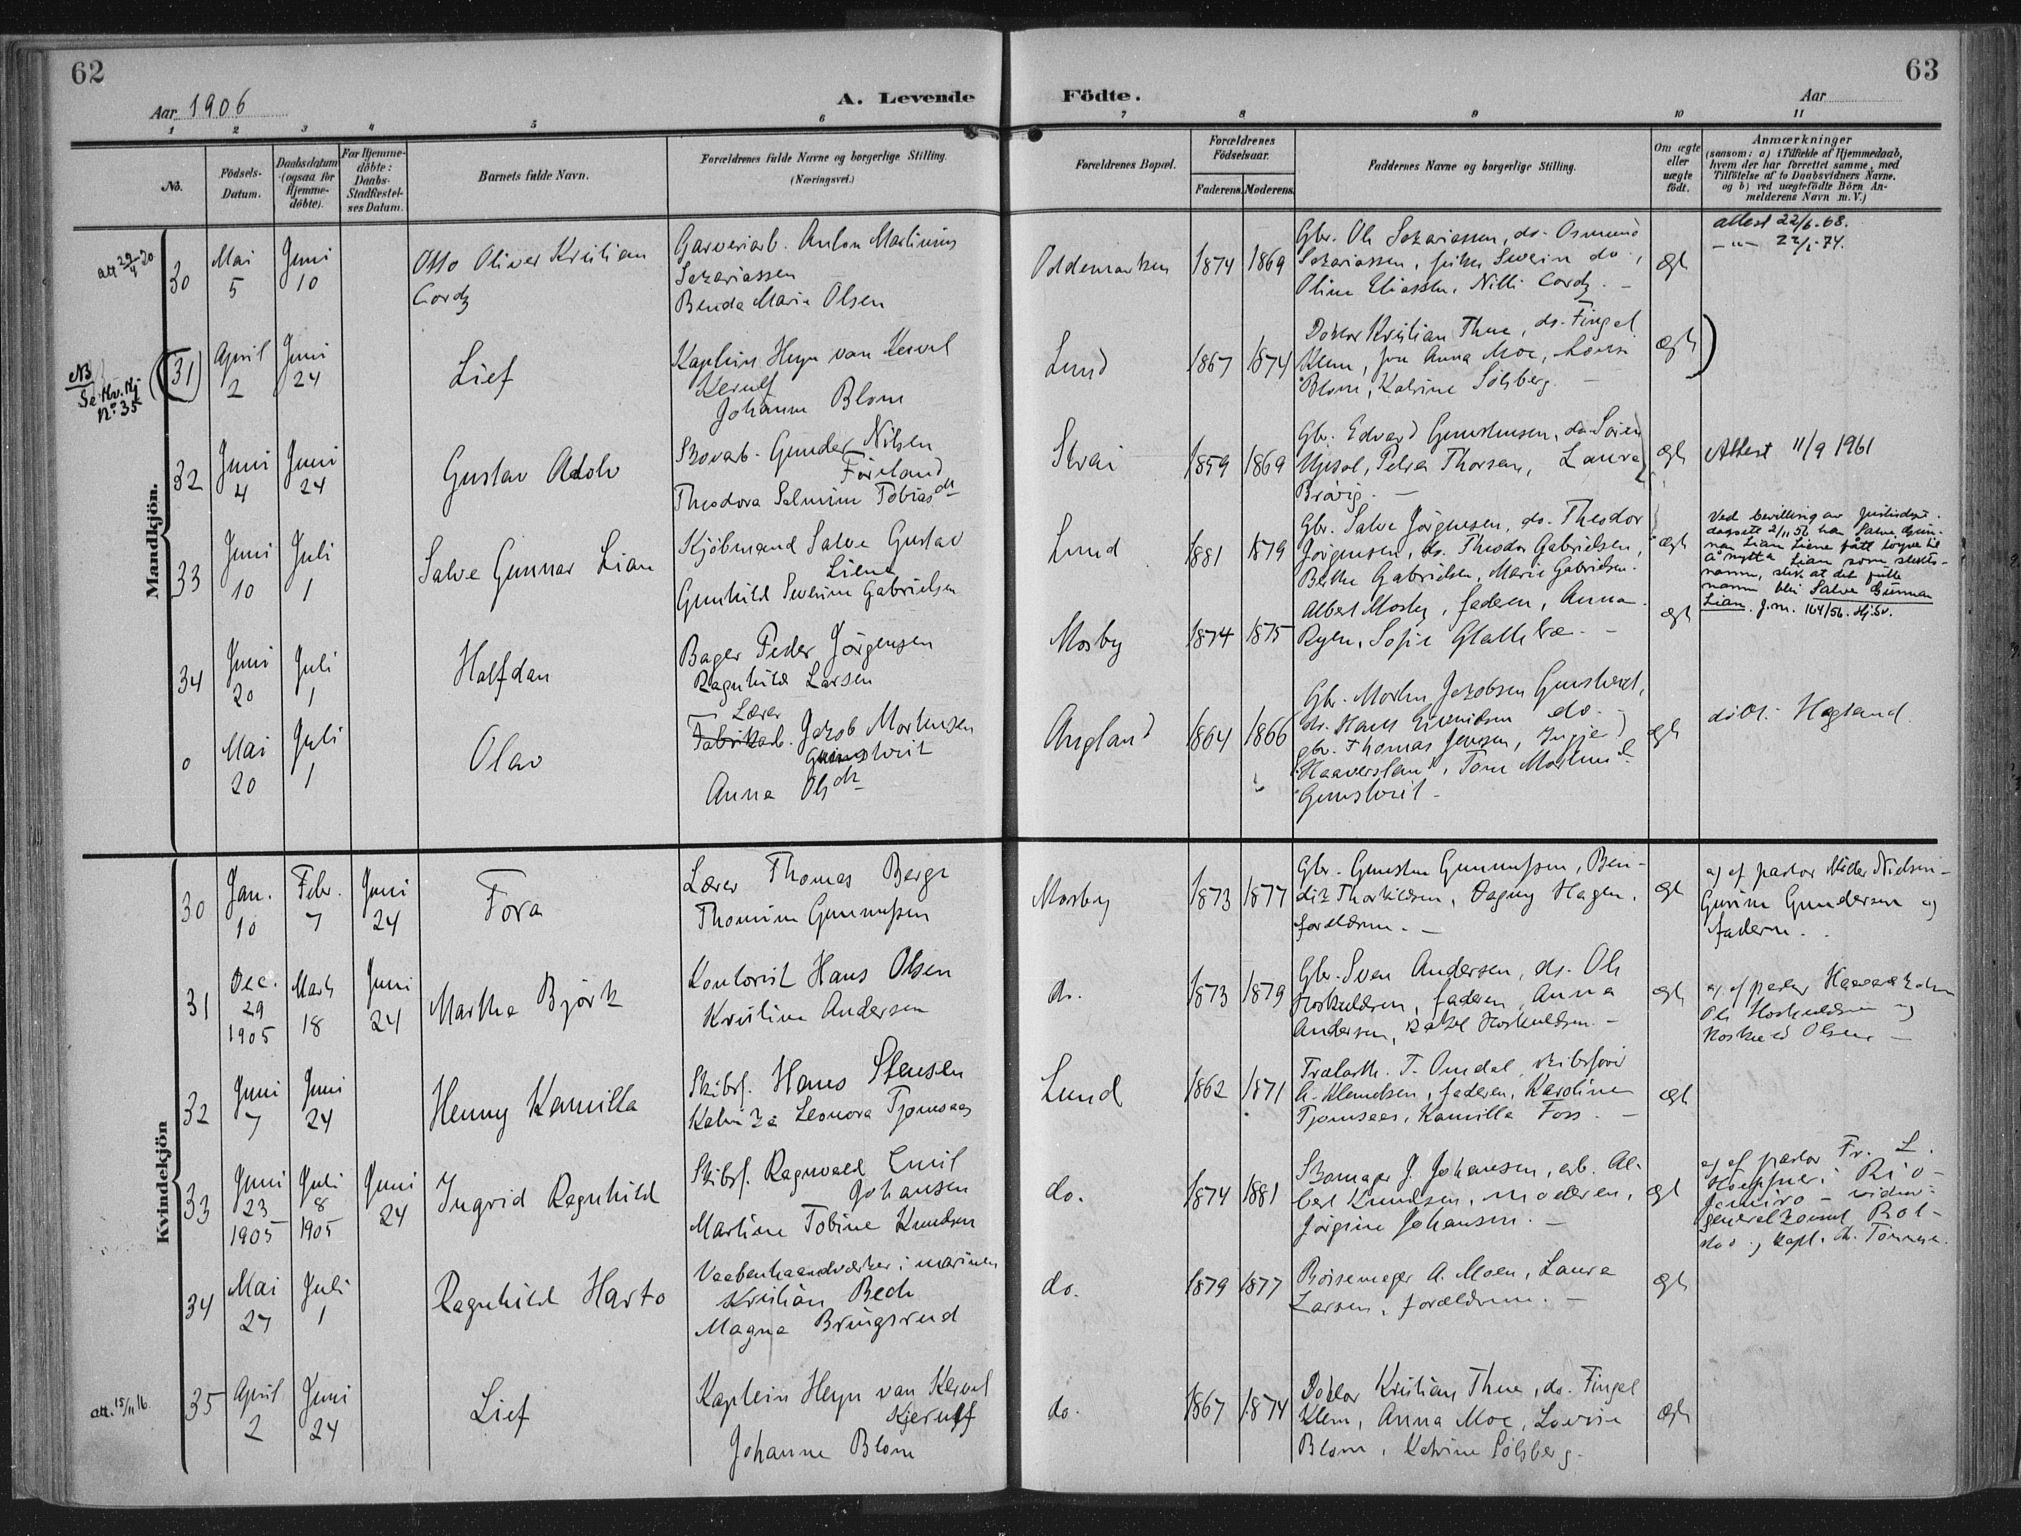 62
63
Aar 1906
A. Levende
Födte.
Aar
1 2 3 4 5 6 7 8 9 10 11
No.
Födsels-
Datum.
Daabsdatum
(ogsaa for
Hjemme-
döbte).
For Hjemme-
döbte:
Daabs-
Stadfæstel-
ses Datum.
Barnets fulde Navn.
Forældrenes fulde Navne og borgerlige Stilling.
(Næringsvei.)
Forældrenes Bopæl.
Forældrenes
Födselsaar.
Faderens.
Moderens.
Faddernes Navne og borgerlige Stilling.
Om ægte
eller
uægte
födt.
Anmærkninger
(saasom: a) i Tilfælde af Hjemmedaab,
hvem der har forrettet samme, med
Tilföielse af to Daabsvidners Navne,
og b) ved uægtefödte Börn An-
melderens Navn m. V.)
Mandkjön.
att 29/4 20
30
Mai
5
Juni
10
Otto Oliver Kristian
Cordz
Garveriarb. Anton Martinius
Sakariassen
Benda Marie Olsen
Oddemarken
1874
1869
Gbr. Ole Sakariassen, do. Osmund
Sakariassen, do.,
Oline Eliassen, Nilli Cordz. —
ægte
attest 22/6-68.
—"— 22/1-74.
NB
Se Kv. Kj
No. 35
(31)
April
2
Juni
24
Lief
Kaptein Heyn van Kervel
Kerulf
Johanne Blom
Lund
1867
1874
Doktor Kristian Thue, do. Fingal
Klem, fru Anna Moe, Lovise
Blom, Katrine Solsberg. —
ægte
32
Juni
4
Juni
24
Gustav Adolv
Skovarb. Gunder Nilsen
Föreland
Theodora Salmine Tobiasdtr
Strai
1859
1869
Gbr. Edvard Gunstensen, do. Sören
Upsal, Petra Thorsen, Laura
Brövig. —
ægte
Attest 11/9 1961
33
Juni
10
Juli
1
Salve Gunnar Lian
Kjöbmand Salve Gustav
Liene
Gunhild Severine Gabrielsen
Lund
1881
1879
Gbr. Salve Jörgensen, do. Theodor
Jörgensen, do. Theodor Gabrielsen,
Berthe Gabrielsen, Marie Gabrielsen.
ægte
Ved bevilling av justisdept.
dagsett 2/11 56 har Salve Gun-
nar Lian Liene fått loyve til
å nytta Lian som slekts-
namn, slik at det fulle
namn blir Salve Gunnar
Lian. J.nr. 164/56. Hj.Sv.
34
Juni
20
Juli
1
Halfdan
Bager Peder Jörgensen
Ragnhild Larsen
Mosby
1874
1875
Albert Mosby, faderen, Anna
Ryen, Sofie Glattetræ. —
ægte
0
Mai
20
Juli
1
Olav
Lærer
Fabrikarb. Jakob Mortensen
Gunstveit
Anna Olsdtr
Augland
1864
1866
Gbr. Morten Jakobsen Gunstveit,
do. Hans Eivindsen do. —
gbr. Thomas Jensen, Ingie
Haaverstan, Tone
Gunstveit —
ægte
döbt i Hægeland
Kvindekjön
30
Jan.
10
Febr.
7
Juni
24
Tora
Lærer Thomas Berge
Thomine Gunnufsen
Mosby
1873
1877
Gbr. Gunsten Gunnufsen, Ben-
dik Thorkildsen, Dagny Hagen,
forældrene. —
ægte
a) af pastor Nielsen —
Gurine Gundersen og
faderen.
31
Dec.
29
1905
Marts
18
Juni
24
Marthe Björk
Kontorist Hans Olsen
Kristine Andersen
do.
1873
1879
Gbr. Sven Andersen, do. Ole
Hoskuldsen, faderen, Anna
Andersen, Rakel Hoskuldsen. —
ægte
a) af
Ole Hoskuldsen og
Hoskuld Olsen —
32
Juni
7
Juni
24
Henny Kamilla
Skibsf. Hans Stensen
Leonora Tjomsaas
Lund
1862
1871
T. Omdal, skibsförer
Klemetsen, faderen, Karoline
Tjomsaas, Kamilla Foss. —
ægte
33
Juni
23
1905
Juli
8
1905
Juni
24
Ingrid Ragnhild
Skibsf. Ragnvald Emil
Johansen
Martine Tobine Knudsen
do.
1874
1881
Skomager J. Johansen, arb. Al-
bert Knudsen, moderen,
Jörgine Johansen. —
ægte
a) af pastor Fr. L.
Höpffner i Rio
Janeiro — vidner:
generalkonsul
og kapt.
34
Mai
27
Juli
1
Ragnhild Harto
Vaabenhaandværker i marinen
Kristian Bech
Magna Bringsrud
do.
1879
1877
Börsemager A. Moen, Laura
Larsen, forældrene. —
ægte
att. 15/11 16.
35
April
2
Juni
24
Lief
Kaptein Heyn van Kervel
Kjerulff
Johanne Blom
do.
1867
1874
Doktor Kristian Thue, do. Fingal
Klem, Anna Moe, Lovise
Blom, Katrine Solsberg.
ægte